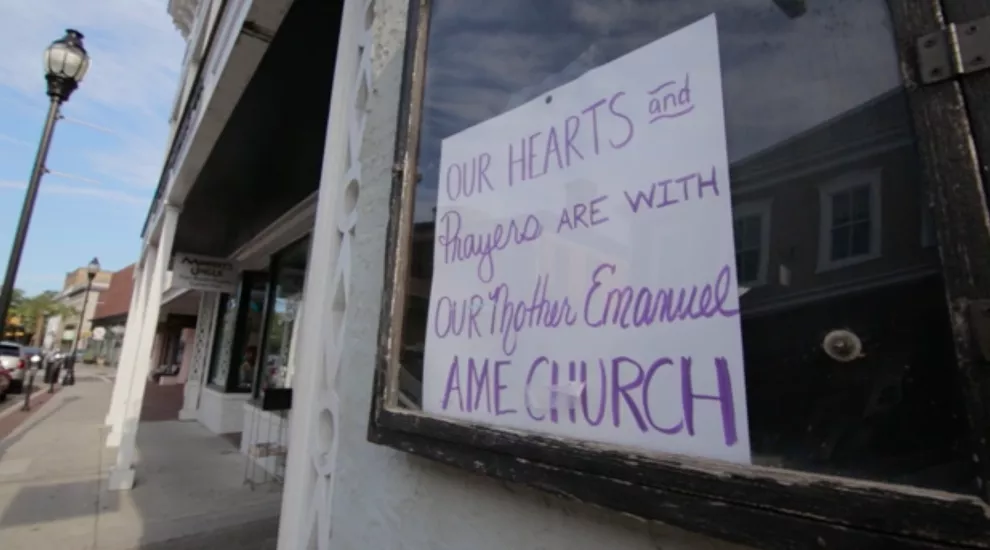 OUR HEARTS and
Prayers ARE WITH
OUR Mother Emanuel
AME CHURCH